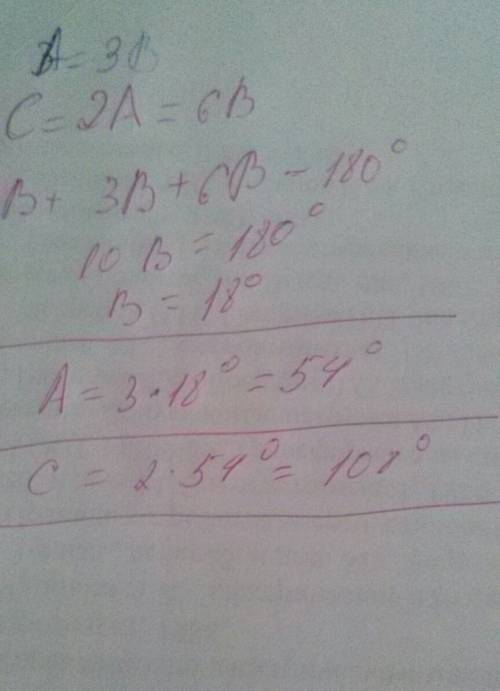 A = 3B
C = 2A = 6B
B + 3B + 6B - 180°
10 B = 180°
B = 18°
A = 3 · 18° = 54°
C = 2 · 54° = 108°